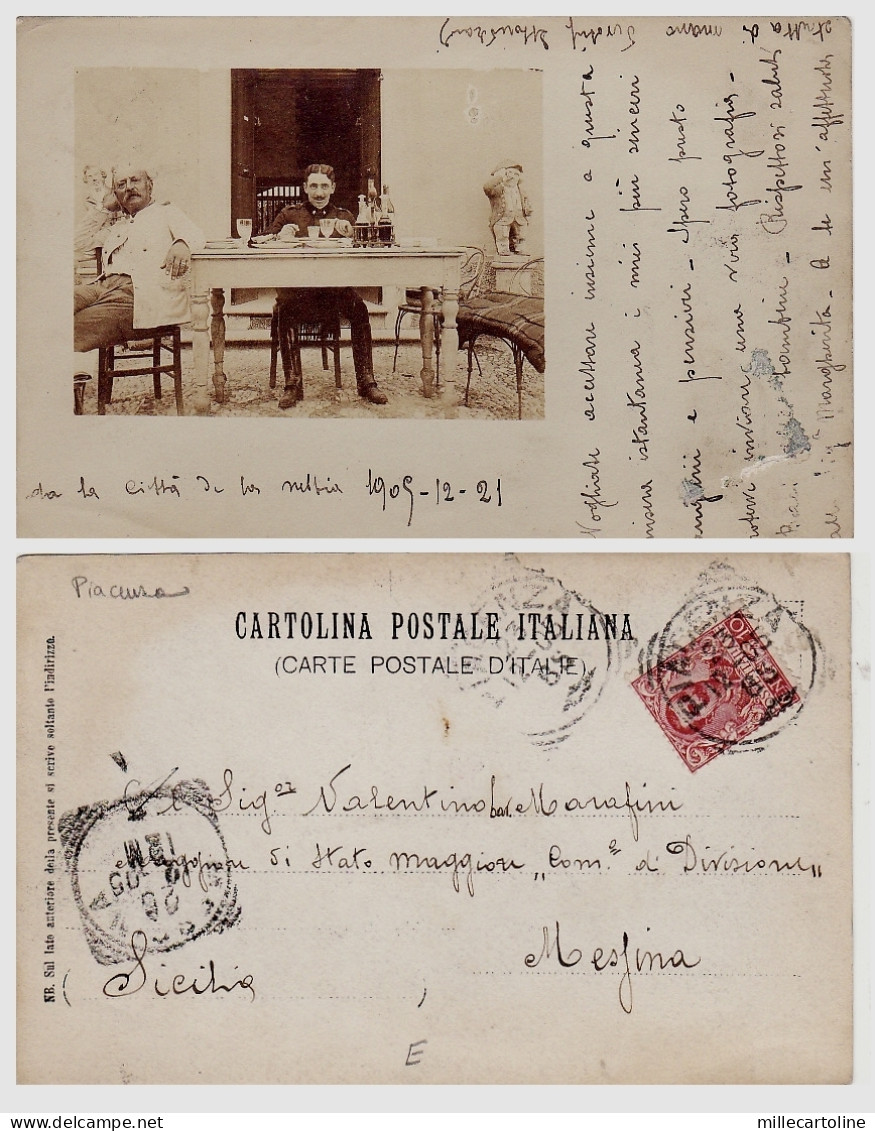 Vogliate accettare insieme a questa
misera istantanea i miei più sinceri
auguri e pensieri - Spero presto
potervi inviare una vera fotografia -
Baci bambine - Rispettosi saluti
alla Sigª Margherita - A te un'affettuosa
stretta di mano
da la città de la nebbia 1905-12-21
Piacenza
CARTOLINA POSTALE ITALIANA
(CARTE POSTALE D'ITALIE)
NB. Sul lato anteriore della presente si scrive soltanto l'indirizzo.
PIACENZA
PIACENZA
Al Sigor Valentino bar. Marafini
Maggiore di Stato Maggiore „Com.º di Divisione„
Messina
(Sicilia)
E
millecartoline